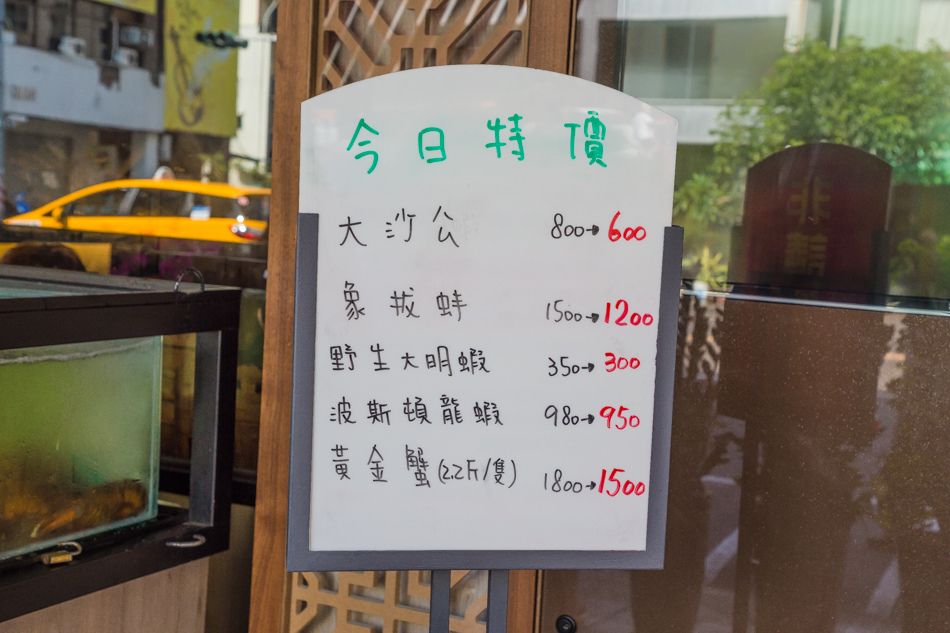 今日特價
大沙公 800→600
象拔蚌 1500→1200
野生大明蝦 350→300
波斯頓龍蝦 980→950
黃金蟹(2.2斤/隻) 1800→1500